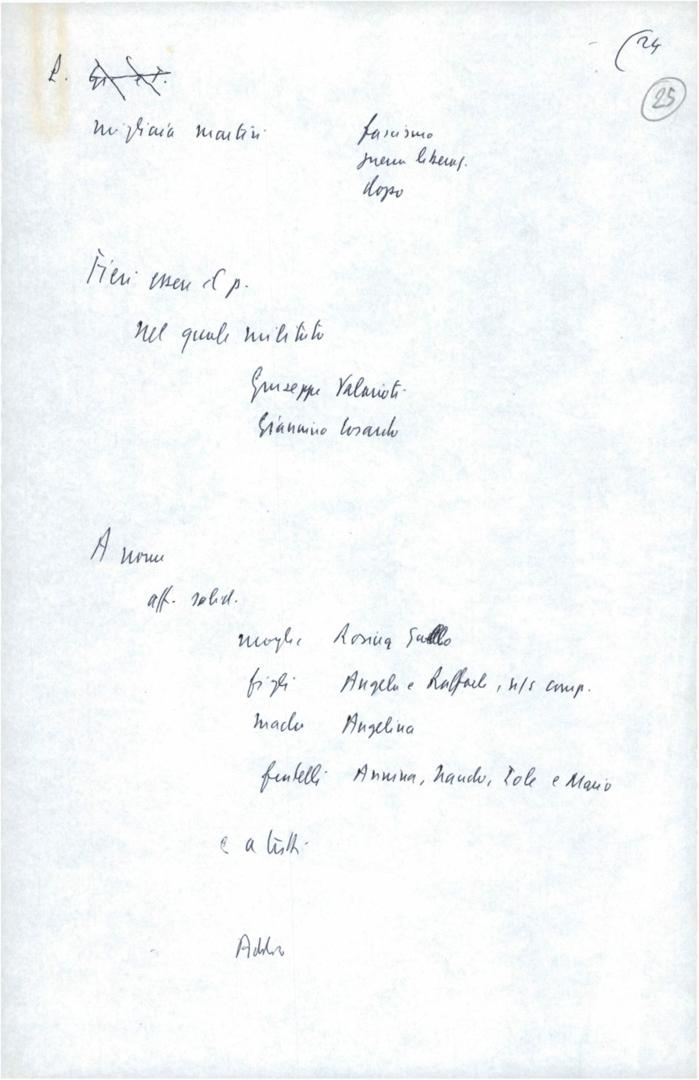 (24
25
P.
migliaia martiri fascismo
guerra liberaz.
dopo
Fieri essere il p.
nel quale militato
Giuseppe Valarioti
Giannino Losardo
A nome
aff. solid.
moglie Rosina Gullo
figli Angelo e Raffaele, n/s comp.
madre Angelina
fratelli Annina, Nando, Iole e Mario
e a tutti
Addio